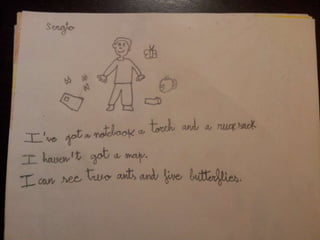 Sergio
I've got a notebook a torch and a rucksack
I haven't got a map.
I can see two ants and five butterflies.